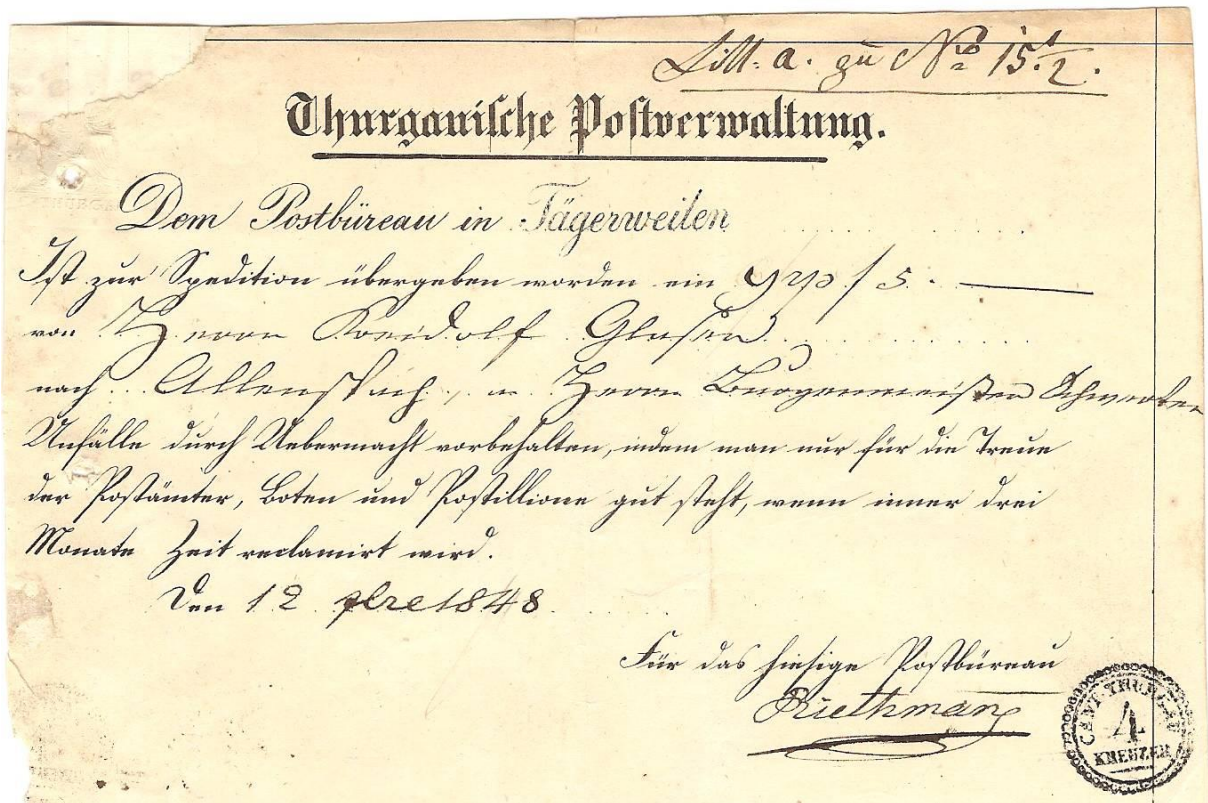 Litt. a. zu No 15 1/2.
Thurgauische Postverwaltung.
Dem Postbüreau in Tägerweilen
Ist zur Spedition übergeben worden ein Grp / 5.
von Herrn Kreidolf Glaser
nach Allenspach, Herrn Burgermeister
Unfälle durch Uebermacht vorbehalten, indem man nur für die Treue
der Postämter, Boten und Postillione gut steht, wenn inner drei
Monate Zeit reclamirt wird.
Den 12 1848
Für das hiesige Postbüreau
Ruethmann
CANT. THURGAU
4
KREUZER